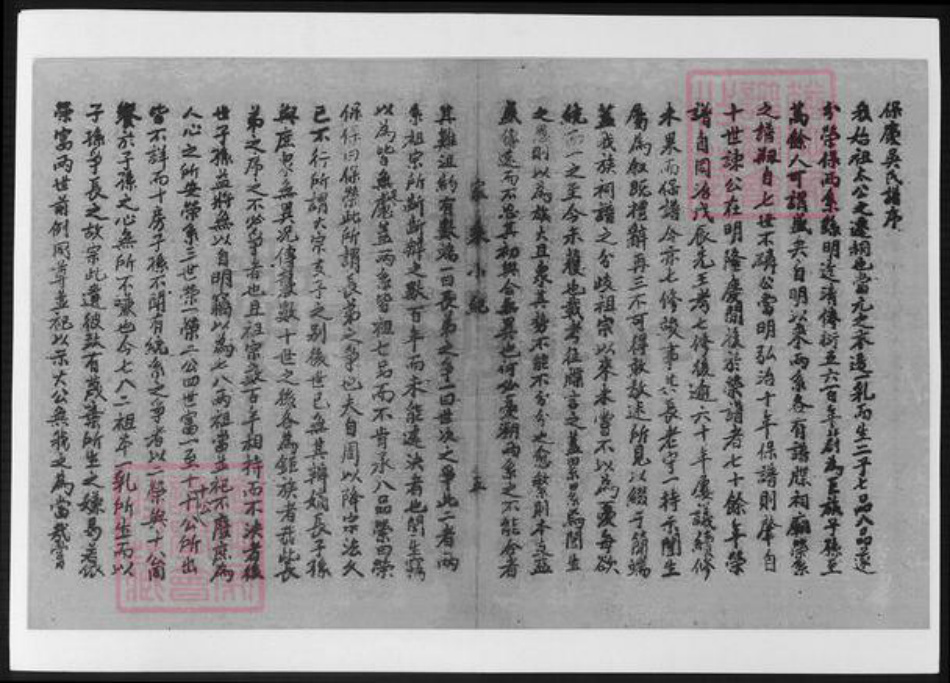 保慶吳氏譜序
我始祖太公之遷祠也當元之末造一乳而生二子七品八品遂
分榮保兩系歷明迄清傳衍五六百年蔚為望族子孫至
萬餘人可謂盛矣自明以來兩系各有譜牒祠廟榮系
之譜刱自七世不磷公當明弘治十年保譜則肇自
十世諫公在明隆慶間後於榮譜者七十餘年榮
譜自同治戊辰先王考七修後逾六十年屢議續修
未果而保譜今亦七修竣事其長老守一持示閏生
屬為敍昵禮辭再三不可得敢述所見以綴于簡端
蓋我族祠譜之分歧祖宗以來未嘗不以為憂每欲
統而一之至今未獲也載考往牒言之蓋累累焉閏生
之愚則以為族大且衆其勢不能不分分之愈繁則本支益
盛傳遠而不忘其初與合無異也何必憂兩系之不能合者
家乘小紀
五
其難沮約有數端一曰長弟之爭一曰世次之爭此二者兩
系祖宗所斷斷辨之數百年而未能遽決者也閏生竊
以為皆無慮蓋兩系皆祖七品而不肯承八品榮曰榮
保保曰保榮此所謂長弟之爭也夫自周以降宗法久
已不行所謂大宗支子之別後世已無其辨嫡長子孫
與庶衆無異況傳數十世之後各為鉅族者哉此長
弟之序之不必爭者也且祖宗數百年相持而不決者後
世子孫益將無以自明竊以為七八兩祖當並祀不廢庶為
人心之所安榮系三世榮一榮二公四世富一至十八公所出
皆不詳而十房子孫不聞有統系之爭者以二榮與十八公
於子孫之心無所不慊也今七八二祖本一乳所生而以
子孫爭長之故宗此遺彼致有蔑棄所生之嫌曷若依
榮富兩世前例同尊並祀以示大公無我之為當哉嘗